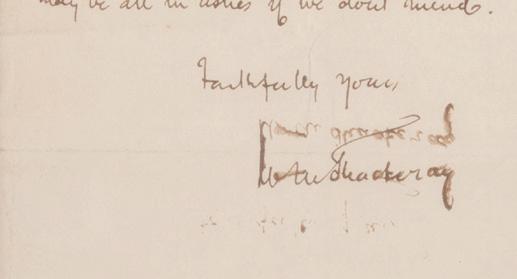 may be all in ashes if we don't mend.
Faithfully yours
W M Thackeray